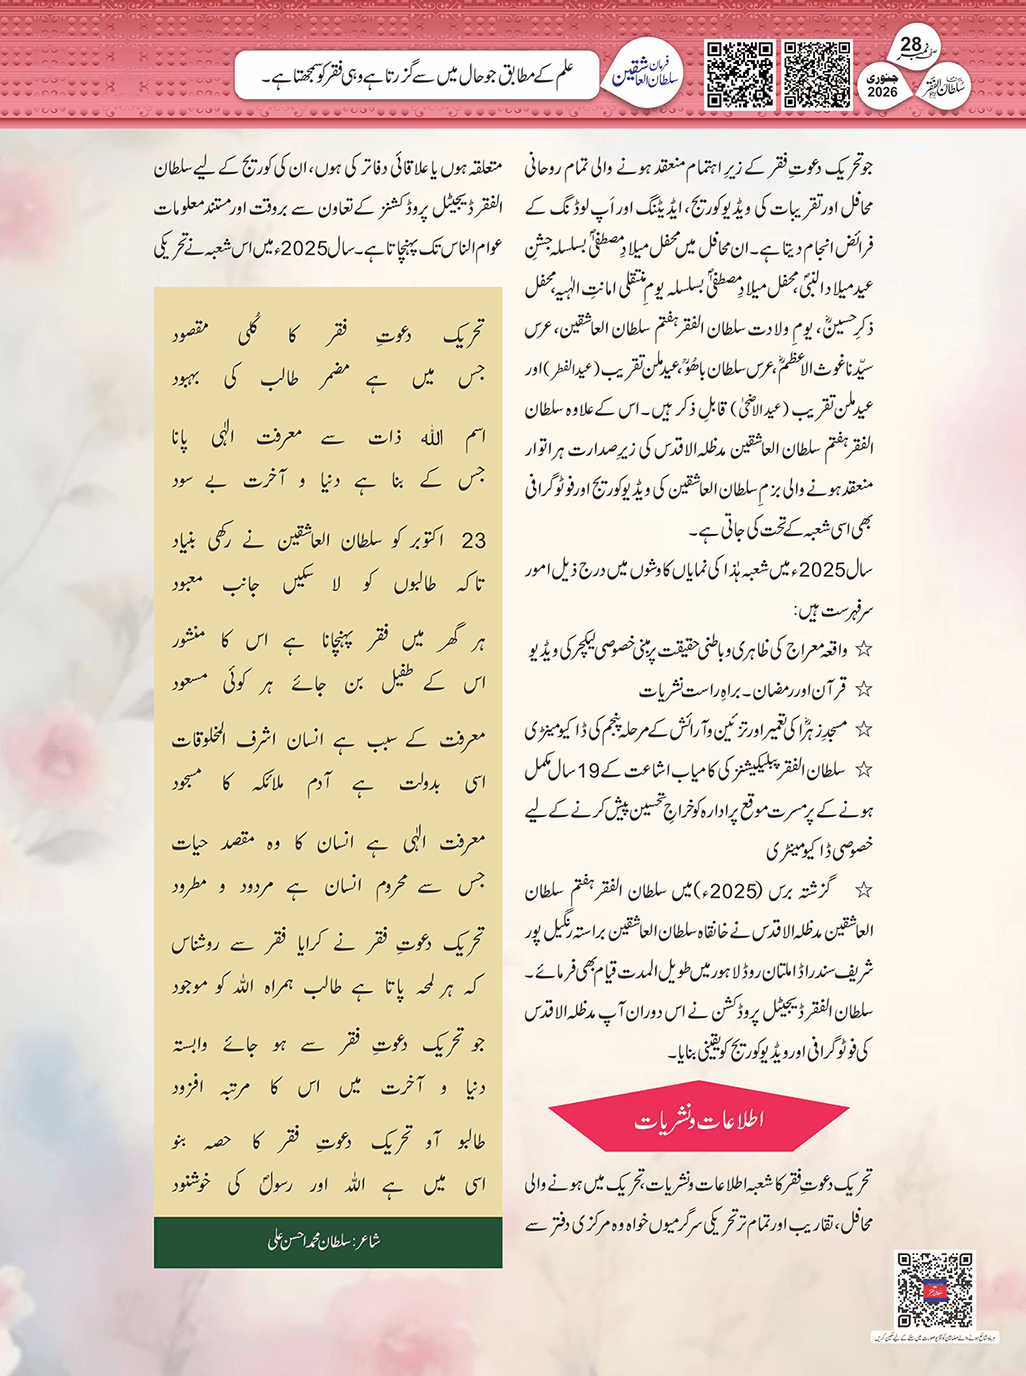 صفحہ نمبر 28
جنوری 2026
سلطان الفقر
فرمان سلطان العاشقین
علم کے مطابق جو حال میں سے گزرتا ہے وہی فقر کو سمجھتا ہے۔
جو تحریک دعوتِ فقر کے زیرِ اہتمام منعقد ہونے والی تمام روحانی
محافل اور تقریبات کی ویڈیو کوریج، ایڈیٹنگ اور اَپ لوڈنگ کے
فرائض انجام دیتا ہے۔ ان محافل میں محفل میلادِ مصطفیؐ بسلسلہ جشنِ
عید میلاد النبیؐ، محفل میلادِ مصطفیؐ بسلسلہ یومِ منتقلی امانتِ الٰہیہ، محفل
ذکرِ حسینؓ، یومِ ولادت سلطان الفقر ہفتم سلطان العاشقین، عرس
سیّدنا غوث الاعظمؓ، عرس سلطان باھوؒ، عید ملن تقریب (عید الفطر) اور
عید ملن تقریب (عید الاضحیٰ) قابلِ ذکر ہیں۔ اس کے علاوہ سلطان
الفقر ہفتم سلطان العاشقین مدظلہ الاقدس کی زیرِ صدارت ہر اتوار
منعقد ہونے والی بزمِ سلطان العاشقین کی ویڈیو کوریج اور فوٹوگرافی
بھی اسی شعبہ کے تحت کی جاتی ہے۔
سال 2025ء میں شعبہ ہٰذا کی نمایاں کاوشوں میں درج ذیل امور
سرفہرست ہیں:
☆ واقعہ معراج کی ظاہری و باطنی حقیقت پر مبنی خصوصی لیکچر کی ویڈیو
☆ قرآن اور رمضان۔ براہِ راست نشریات
☆ مسجدِ زہراؓ کی تعمیر اور تزئین و آرائش کے مرحلہ پنجم کی ڈاکیومینٹری
☆ سلطان الفقر پبلیکیشنز کی کامیاب اشاعت کے 19 سال مکمل
ہونے کے پرمسرت موقع پر ادارہ کو خراجِ تحسین پیش کرنے کے لیے
خصوصی ڈاکیومینٹری
☆ گزشتہ برس (2025ء) میں سلطان الفقر ہفتم سلطان
العاشقین مدظلہ الاقدس نے خانقاہ سلطان العاشقین براستہ رنگیل پور
شریف سندر اڈا ملتان روڈ لاہور میں طویل المدت قیام بھی فرمائے۔
سلطان الفقر ڈیجیٹل پروڈکشن نے اس دوران آپ مدظلہ الاقدس
کی فوٹوگرافی اور ویڈیو کوریج کو یقینی بنایا۔
اطلاعات و نشریات
تحریک دعوتِ فقر کا شعبہ اطلاعات و نشریات، تحریک میں ہونے والی
محافل، تقاریب اور تمام تر تحریکی سرگرمیوں خواہ وہ مرکزی دفتر سے
متعلقہ ہوں یا علاقائی دفاتر کی ہوں، ان کی کوریج کے لیے سلطان
الفقر ڈیجیٹل پروڈکشنز کے تعاون سے بروقت اور مستند معلومات
عوام الناس تک پہنچاتا ہے۔ سال 2025ء میں اس شعبہ نے تحریکی
تحریک دعوتِ فقر کا کُلی مقصود
جس میں ہے مضمر طالب کی بہبود
اسمِ اللہ ذات سے معرفت الٰہی پانا
جس کے بنا ہے دنیا و آخرت بے سود
23 اکتوبر کو سلطان العاشقین نے رکھی بنیاد
تاکہ طالبوں کو لا سکیں جانب معبود
ہر گھر میں فقر پہنچانا ہے اس کا منشور
اس کے طفیل بن جائے ہر کوئی مسعود
معرفت کے سبب ہے انسان اشرف المخلوقات
اسی بدولت ہے آدم ملائکہ کا مسجود
معرفت الٰہی ہے انسان کا وہ مقصد حیات
جس سے محروم انسان ہے مردود و مطرود
تحریک دعوتِ فقر نے کرایا فقر سے روشناس
کہ ہر لمحہ پاتا ہے طالب ہمراہ اللہ کو موجود
جو تحریک دعوتِ فقر سے ہو جائے وابستہ
دنیا و آخرت میں اس کا مرتبہ افزود
طالبو آؤ تحریک دعوتِ فقر کا حصہ بنو
اسی میں ہے اللہ اور رسولؐ کی خوشنود
شاعر: سلطان محمد احسن علی